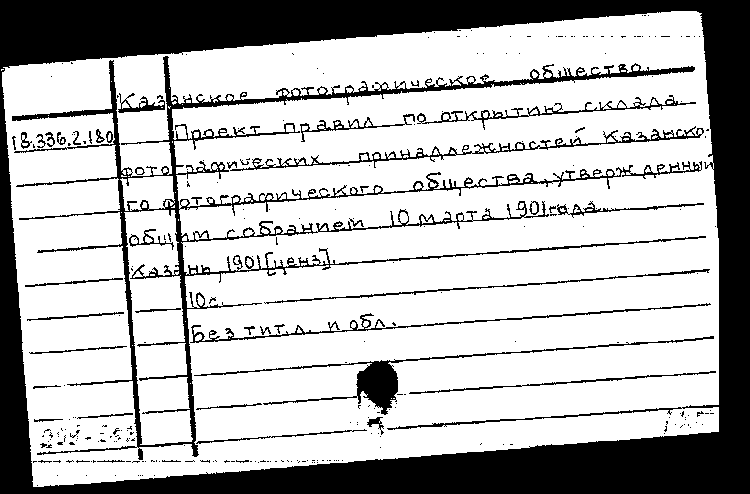 Казанское фотографическое общество.
18.336.2.180 Проект правил по открытию склада
фотографических принадлежностей Казанско-
го фотографического общества, утвержденный
общим собранием 10 марта 1901 года.
Казань, 1901 [ценз].
10с.
Без тит.л. и обл.